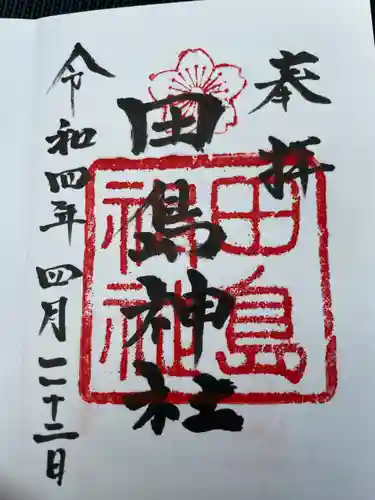 奉拝
田島神社
田島
神社
令和四年四月二十二日